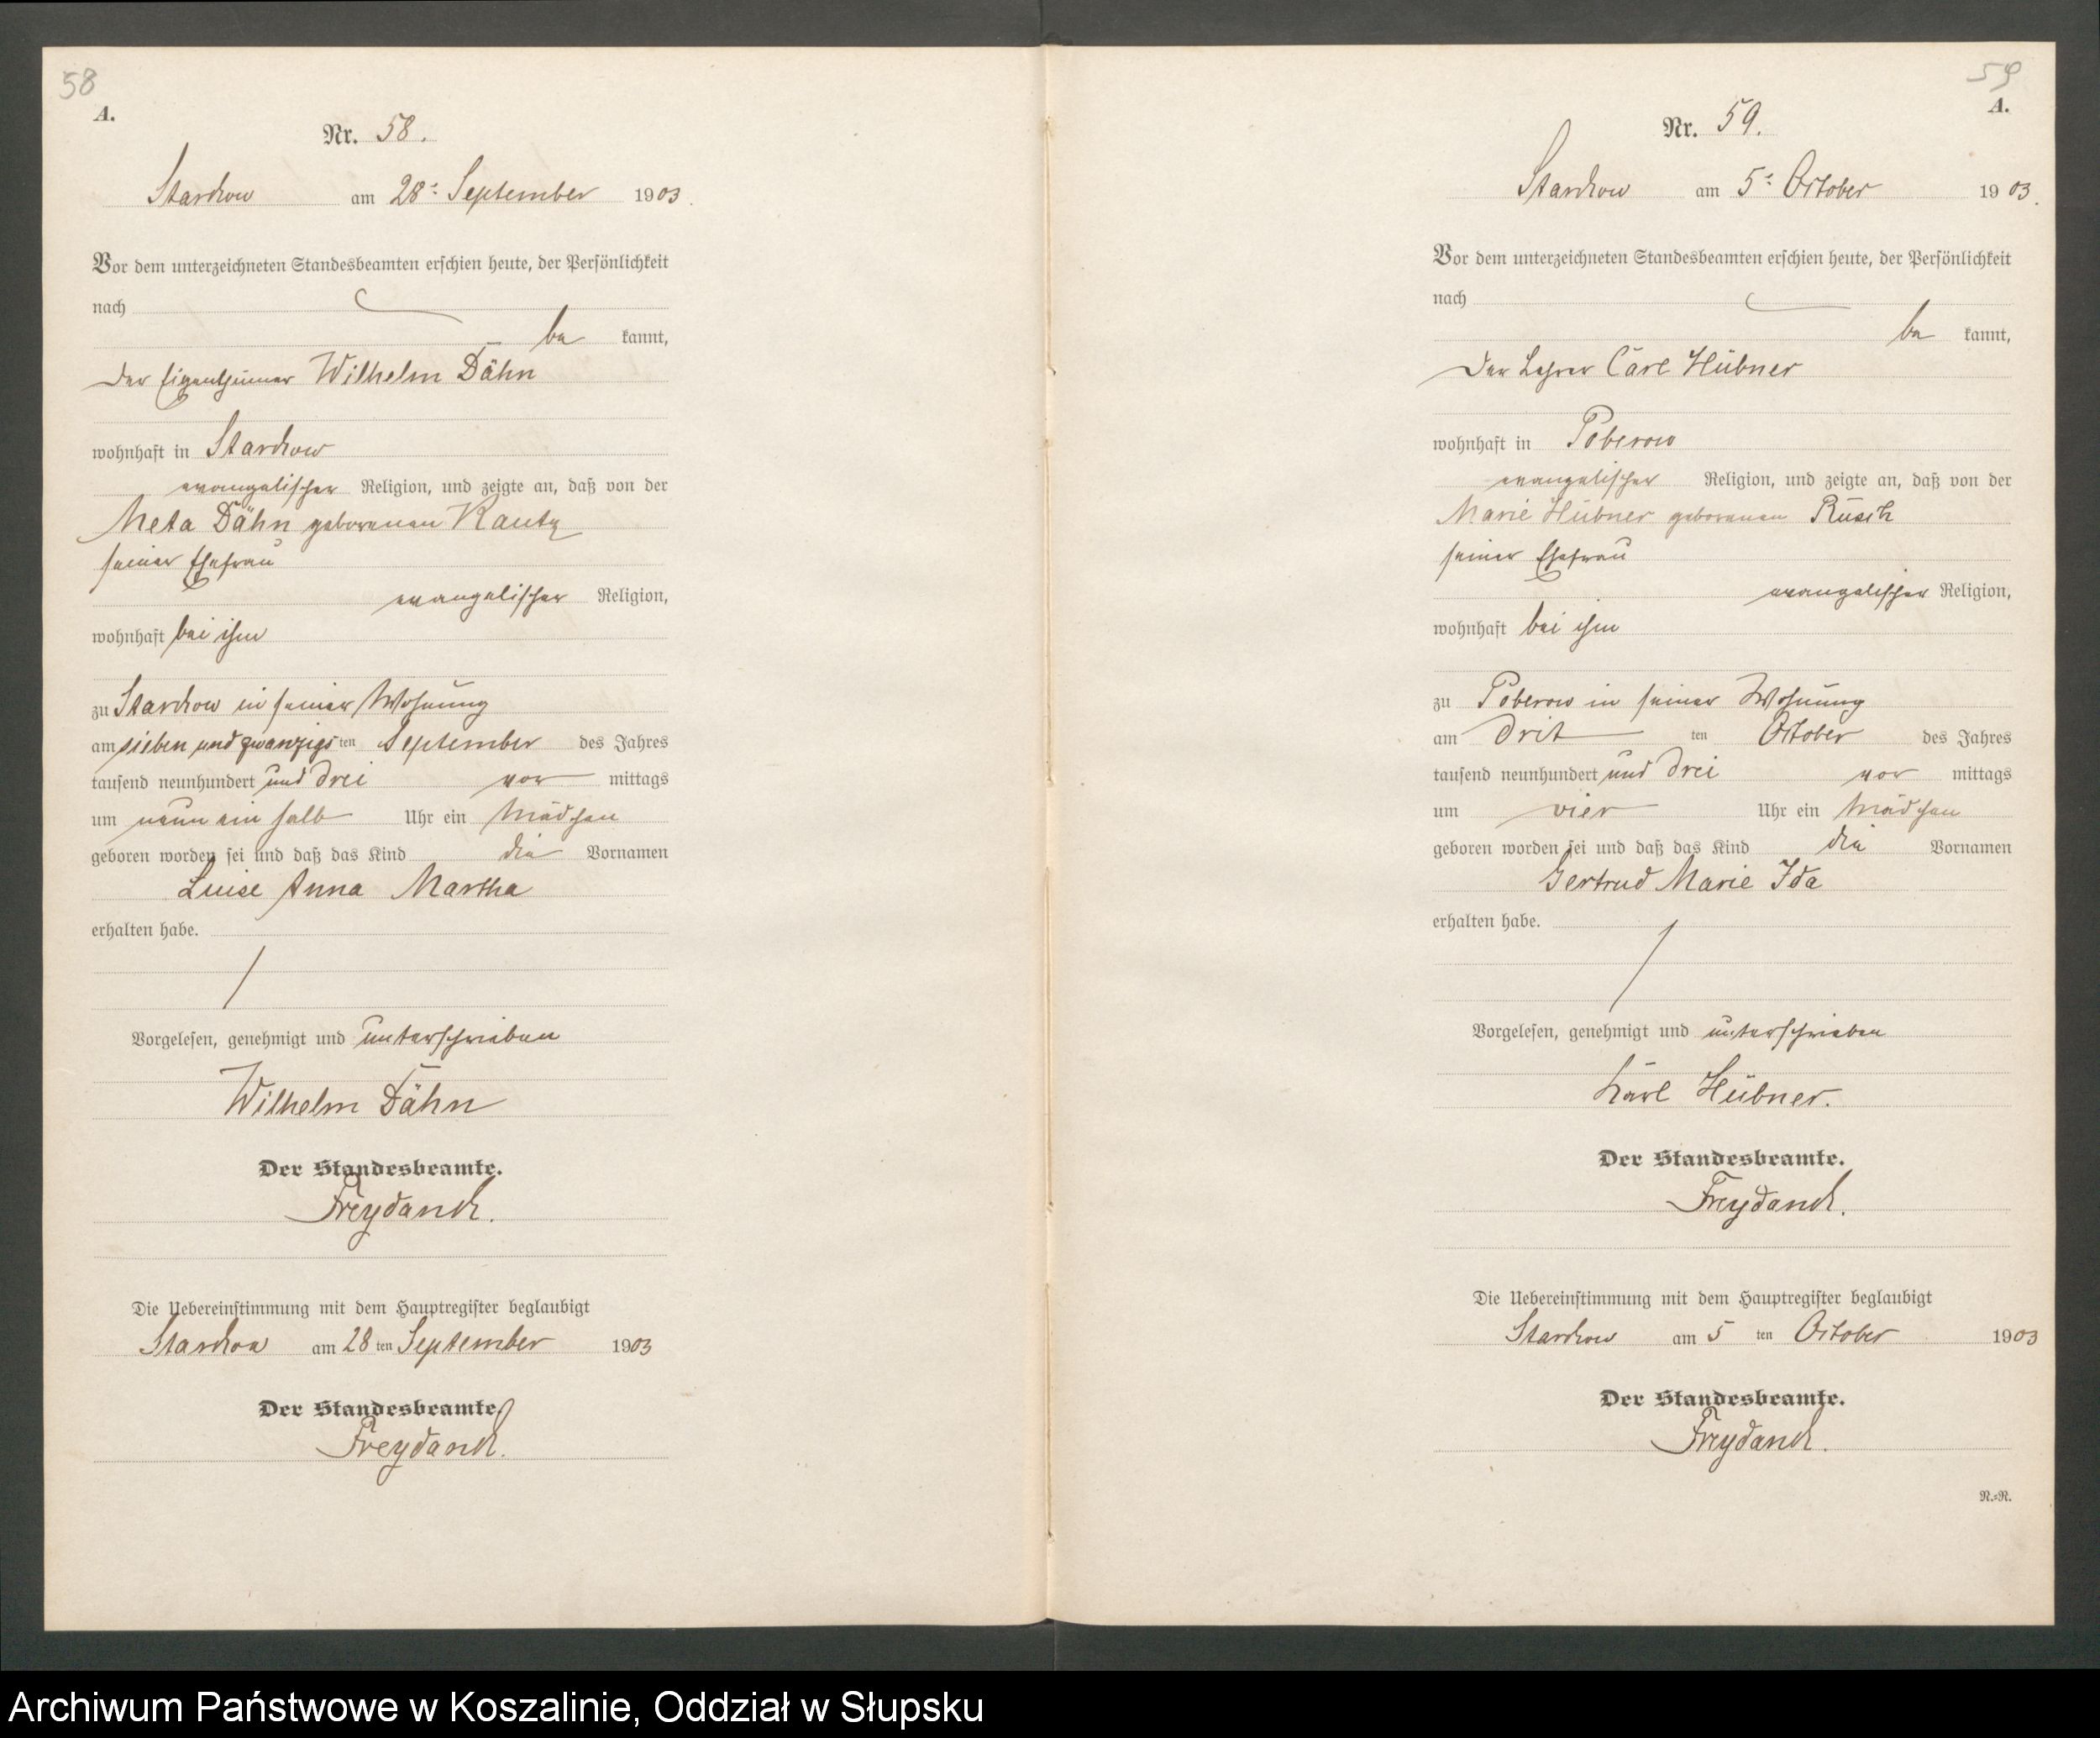 58
A.
Nr. 58.
Starckow am 28t September 1903.
Vor dem unterzeichneten Standesbeamten erschien heute, der Persönlichkeit
nach
be kannt,
der Eigenthümer Wilhelm Dähn
wohnhaft in Starckow
evangelischer Religion, und zeigte an, daß von der
Meta Dähn geborenen Kautz
seiner Ehefrau
evangelischer Religion,
wohnhaft bei ihm
zu Starckow in seiner Wohnung
am sieben und zwanzigs ten September des Jahres
tausend neunhundert und drei vor mittags
um neun ein halb Uhr ein Mädchen
geboren worden sei und daß das Kind die Vornamen
Luise Anna Martha
erhalten habe.
Vorgelesen, genehmigt und unterschrieben
Wilhelm Dähn
Der Standesbeamte.
Freydanck.
Die Uebereinstimmung mit dem Hauptregister beglaubigt
Starckow am 28 ten September 1903
Der Standesbeamte.
Freydanck.
59
A.
Nr. 59.
Starckow am 5t October 1903.
Vor dem unterzeichneten Standesbeamten erschien heute, der Persönlichkeit
nach
be kannt,
Der Lehrer Carl Hübner
wohnhaft in Poberow
evangelischer Religion, und zeigte an, daß von der
Marie Hübner geborenen Rusch
seiner Ehefrau
evangelischer Religion,
wohnhaft bei ihm
zu Poberow in seiner Wohnung
am drit ten October des Jahres
tausend neunhundert und drei vor mittags
um vier Uhr ein Mädchen
geboren worden sei und daß das Kind die Vornamen
Gertrud Marie Ida
erhalten habe.
Vorgelesen, genehmigt und unterschrieben
Karl Hübner.
Der Standesbeamte.
Freydanck.
Die Uebereinstimmung mit dem Hauptregister beglaubigt
Starckow am 5 ten October 1903
Der Standesbeamte.
Freydanck.
N.=R.
Archiwum Państwowe w Koszalinie, Oddział w Słupsku